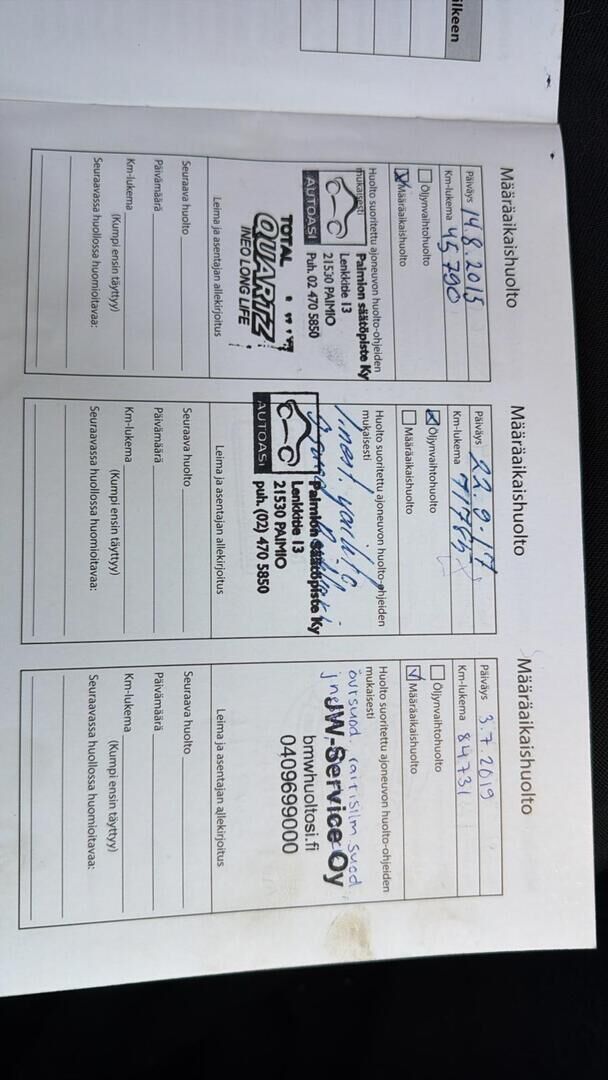 lkeen
Määräaikaishuolto
Päiväys 14.8.2015
Km-lukema 45790
Öljynvaihtohuolto
Määräaikaishuolto
Huolto suoritettu ajoneuvon huolto-ohjeiden
mukaisesti
AUTOASI
Paimion säätöpiste Ky
Lenkkitie 13
21530 PAIMIO
Puh. 02 470 5850
TOTAL
QUARTZ
INEO LONG LIFE
Leima ja asentajan allekirjoitus
Seuraava huolto
Päivämäärä
Km-lukema
(Kumpi ensin täyttyy)
Seuraavassa huollossa huomioitavaa:
Määräaikaishuolto
Päiväys 22.9.17
Km-lukema 71785
Öljynvaihtohuolto
Määräaikaishuolto
Huolto suoritettu ajoneuvon huolto-ohjeiden
mukaisesti
AUTOASI
Paimion säätöpiste Ky
Lenkkitie 13
21530 PAIMIO
puh. (02) 470 5850
Leima ja asentajan allekirjoitus
Seuraava huolto
Päivämäärä
Km-lukema
(Kumpi ensin täyttyy)
Seuraavassa huollossa huomioitavaa:
Määräaikaishuolto
Päiväys 3.7.2019
Km-lukema 84731
Öljynvaihtohuolto
Määräaikaishuolto
Huolto suoritettu ajoneuvon huolto-ohjeiden
mukaisesti
raitisilm suod
JW-Service Oy
bmwhuoltosi.fi
0409699000
Leima ja asentajan allekirjoitus
Seuraava huolto
Päivämäärä
Km-lukema
(Kumpi ensin täyttyy)
Seuraavassa huollossa huomioitavaa: